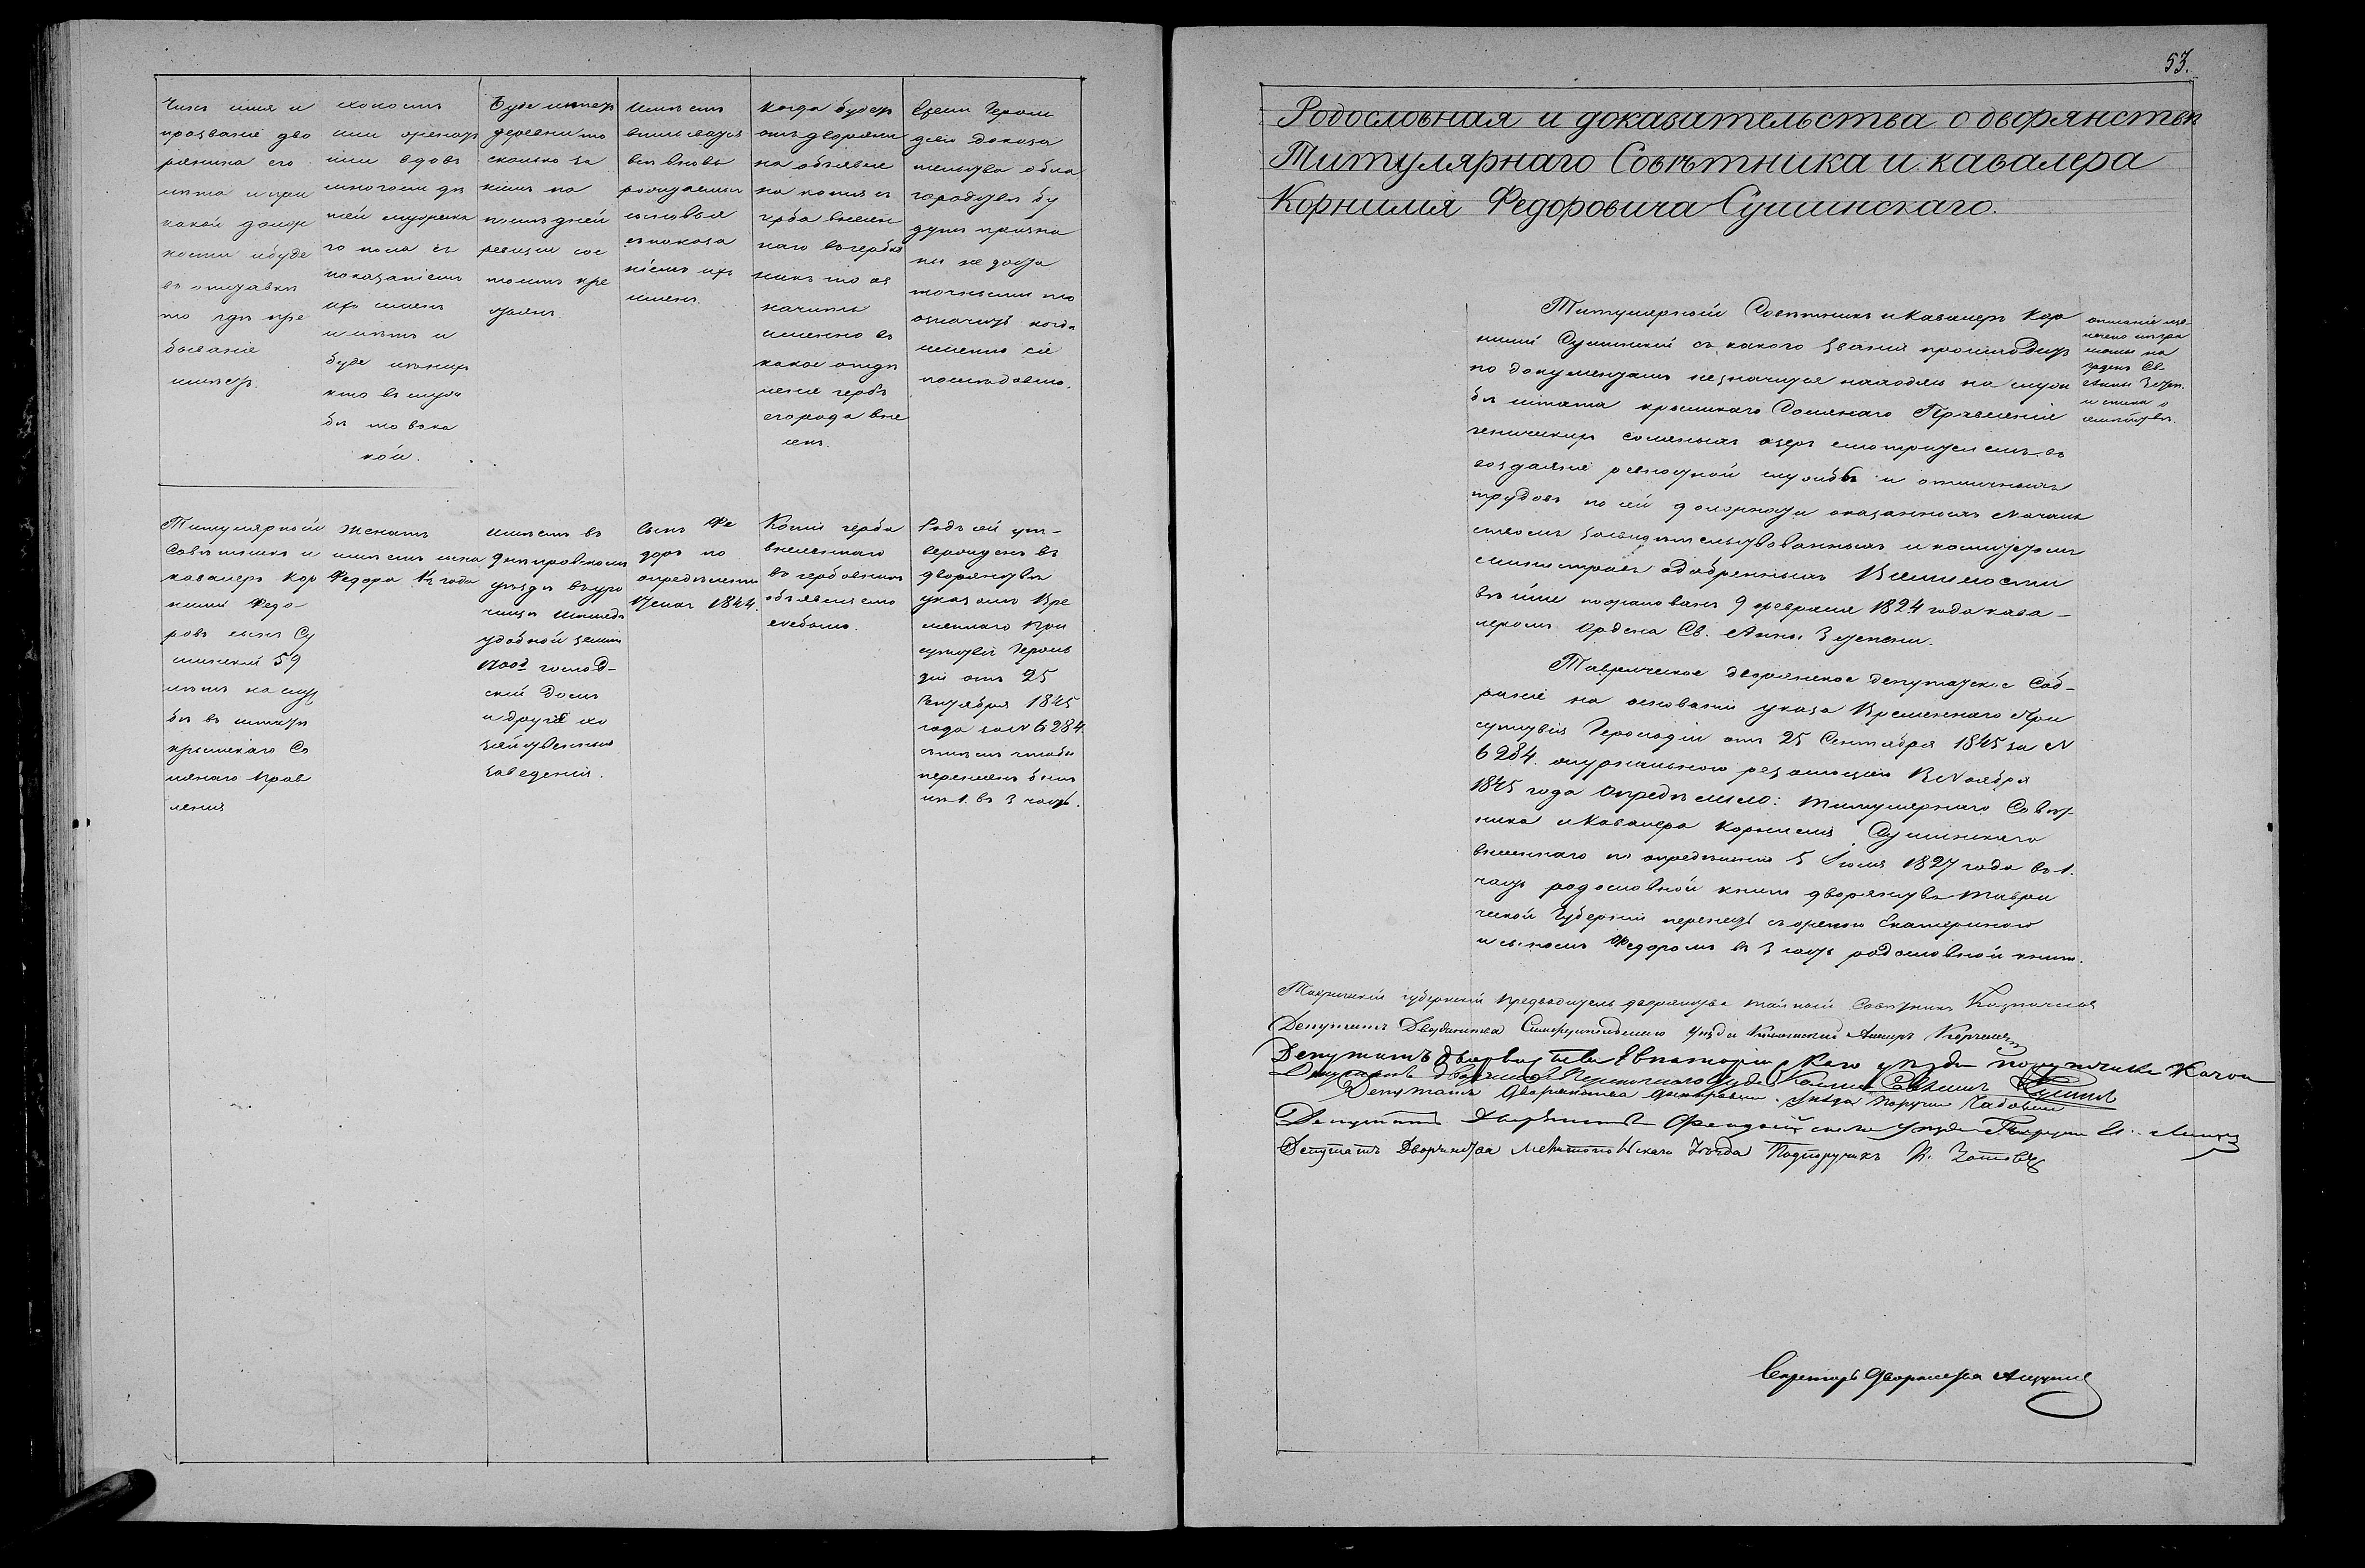 Чинъ имя и
прозвание дво
рянина его
лѣта и при
какой долж
ности и буде
въ отставкѣ
то гдѣ пре
бывание
имѣетъ.
холостъ
или женатъ
или вдовъ
много ли дѣ
тей мужеска
го пола съ
показаниемъ
ихъ именъ
и лѣтъ и
буде изъ нихъ
кто въ служ
бѣ то въ ка
кой.
Буде имѣетъ
деревни то
сколько за
нимъ по
послѣдней
ревизии сос
тоитъ кре
стьянъ.
Имѣетъ
вписывать
ся вновь
рожденныхъ
сыновья
съ показа
ніемъ ихъ
именъ.
Когда будетъ
отъ дворяни
на объявле
на копия съ
герба внесен
наго въ гербов
никъ то оз
начить
именно въ
какое отдѣ
ленiе гербъ
его рода вне
сенъ.
Ежели Герол
дiею доказа
тельства о бла
городствѣ бу
дутъ призна
ны не доста
точными то
означить когда
именно сiе
послѣдовало.
Титулярный
Совѣтникъ и
кавалеръ Кор
нилий Федо-
ровъ сынъ Су
шинскій 59
лѣтъ на служ
бѣ въ штатѣ
крымскаго Со
лянаго Прав
ленія
Женатъ
имѣетъ сына
Федора 1½ года
имѣетъ въ
Днѣпровскомъ
уѣздѣ въ уро
чищѣ
удобной земли
1700 д господ-
скій домъ
и другiя хо
зяйственныя
заведенiя.
Сынъ Фе
доръ по
опредѣленiю
1844.
Копiи герба
внесеннаго
въ гербовникъ
объявляемо
небыло.
Родъ сей ут-
вержденъ въ
дворянствѣ
указомъ Вре
меннаго При
сутствiя Героль
дiи отъ 25
Сентября 1845
года за № 6284.
съ тѣмъ чтобы
перенесенъ былъ
изъ 1. въ 3 часть.
53.
Родословная и доказательства о дворянствѣ
Титулярнаго Совѣтника и кавалера
Корнилія Федоровича Сушинскаго.
Титулярный Совѣтникъ и Кавалеръ Кор
нилий Сушинскій съ какого званiя происходитъ
по документамъ не значится находясь на служ
бѣ штата крымскаго Солянаго Правленiя
геническихъ соляныхъ озеръ смотрителемъ въ
воздаянiе ревностной службы и отличныхъ
трудовъ по сей должности оказанныхъ Началь
ствомъ засвидѣтельствованныхъ и комитетомъ
министровъ одобренныхъ Всемилости
вѣйше пожалованъ 9 февраля 1824 года кава-
леромъ Ордена Св. Анны 3 степени.
Таврическое дворянское депутатское Соб-
ранiе на основанiи указа Временнаго При
сутствiя Герольдiи отъ 25 Сентября 1845 за №
6284. журнальною резолюцiею Ноября
1845 года опредѣлило: титулярнаго Совѣт-
ника и Кавалера Корнилiя Сушинскаго
внесеннаго по опредѣленiю 5 Iюля 1827 года въ 1.
часть родословной книги дворянства Таври
ческой Губернiи перенесть съ женою Екатериною
и сыномъ Федоромъ въ 3 часть родословной книги.
описаніе
на
орденъ Св.
Анны 3 степ.
Таврическiй губернскiй предводитель дворянства тайный Совѣтникъ Казначеевъ
Депутатъ Дворянства Симферопольскаго уѣзда
Депутатъ дворянства Евпаторiйскаго уѣзда поручикъ
Депутатъ дворянства Перекопскаго уѣзда
Депутатъ Дворянства Днѣпровскаго уѣзда Поручикъ
Депутатъ Дворянства Феодосiйскаго уѣзда
Депутатъ Дворянства Мелитопольскаго Уѣзда Подпоручикъ
Секретарь Дворянства